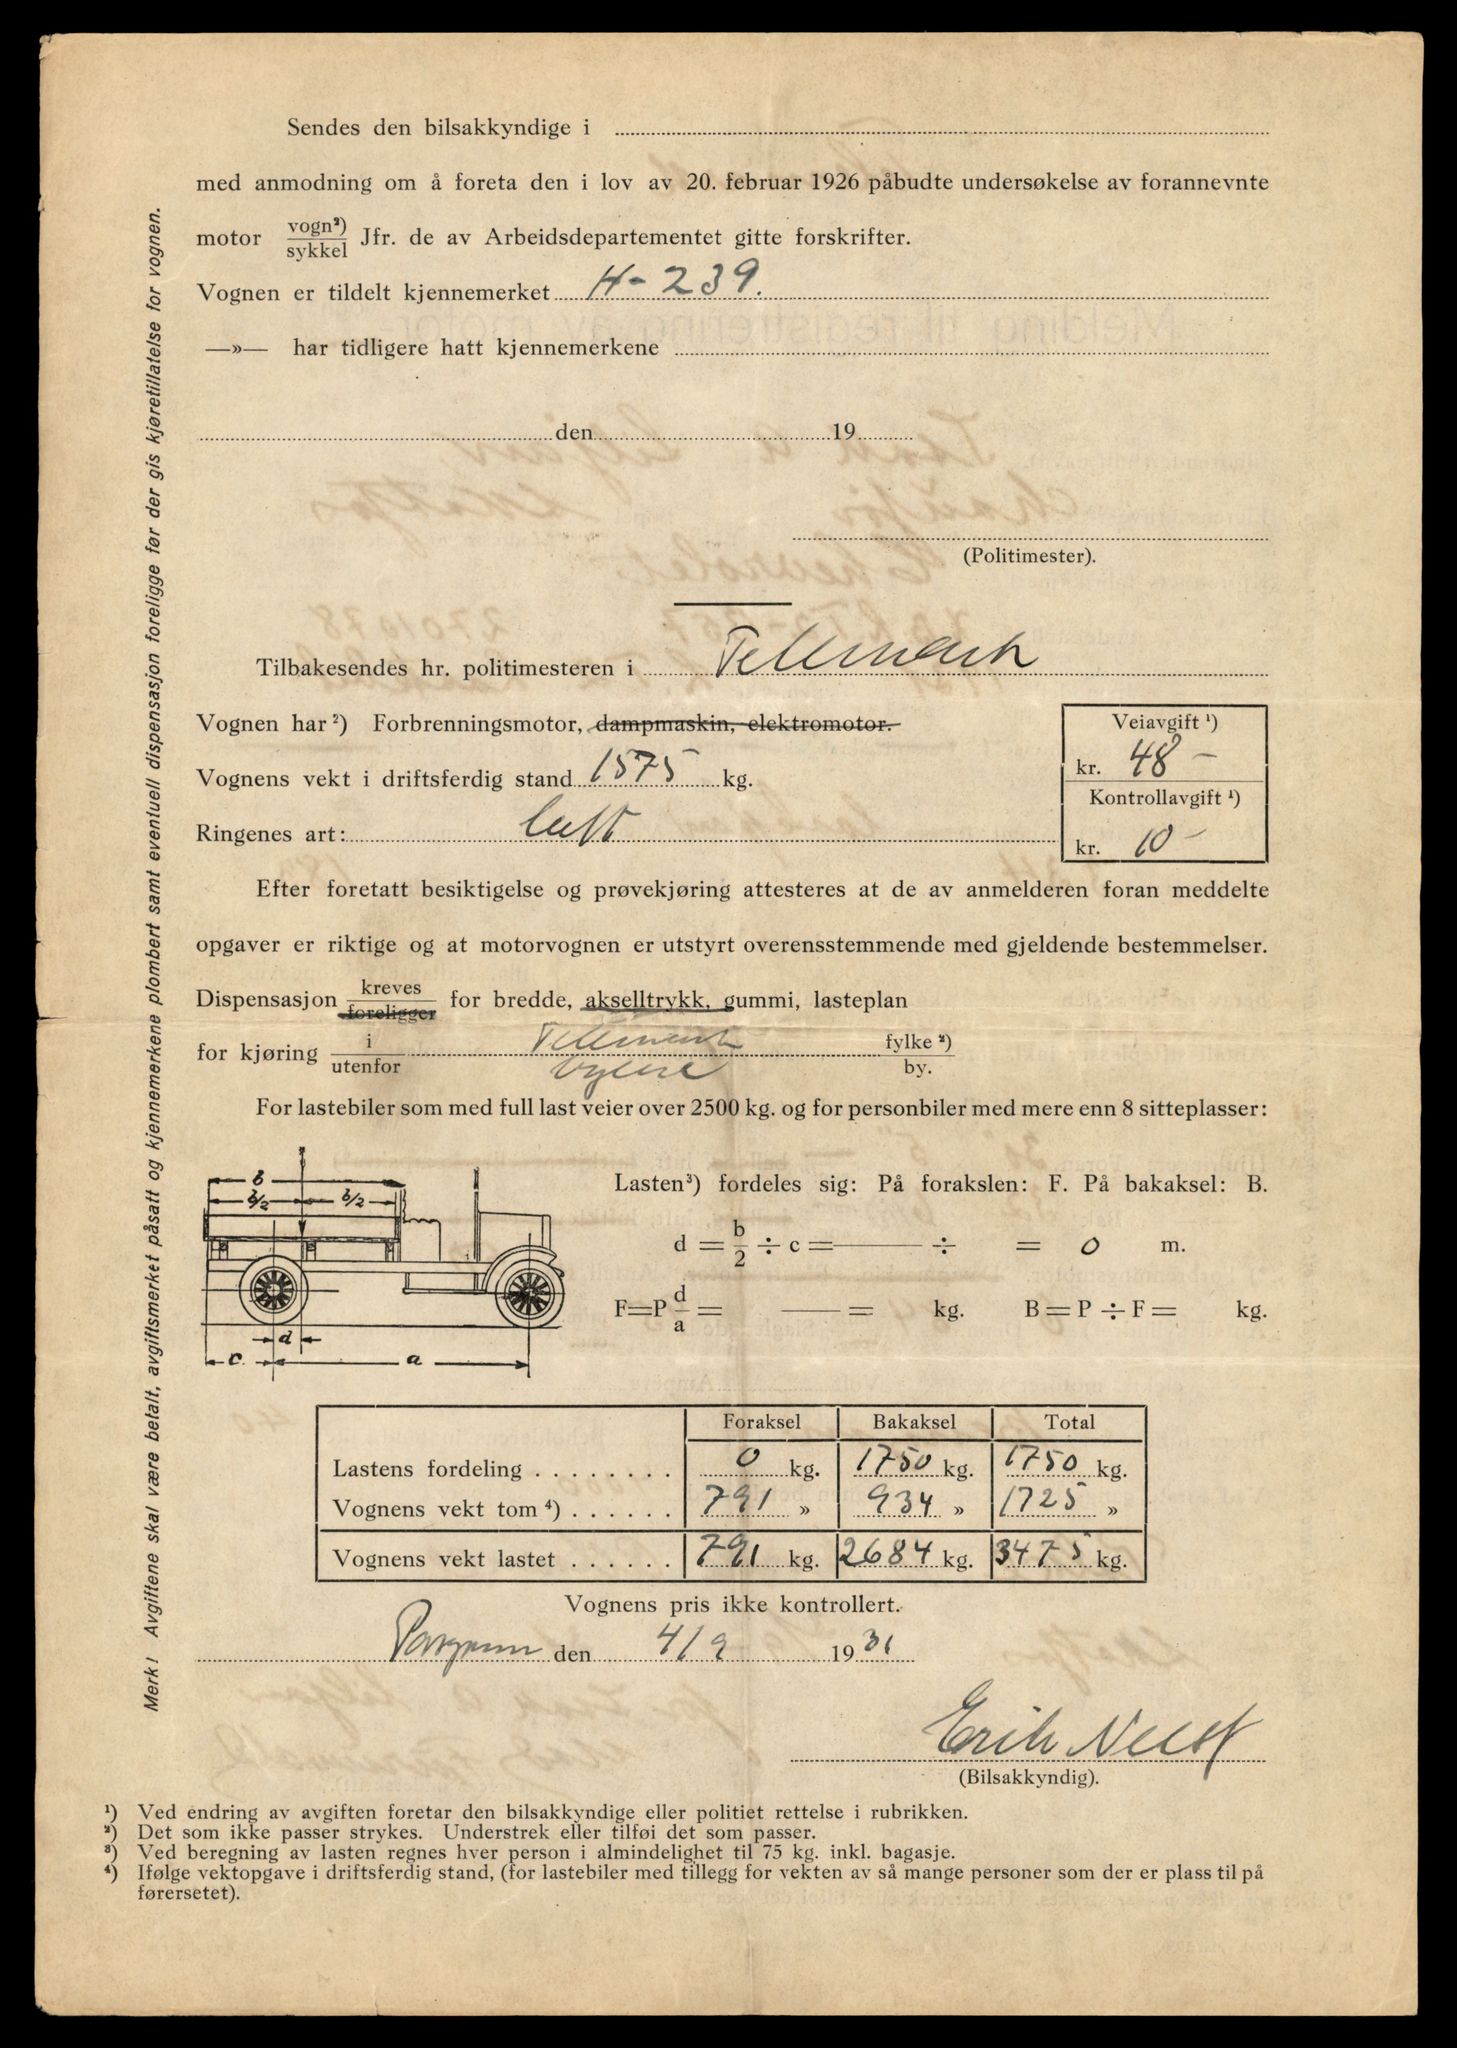 Sendes den bilsakkyndige i
med anmodning om å foreta den i lov av 20. februar 1926 påbudte undersøkelse av forannevnte
motor vogn²)/sykkel Jfr. de av Arbeidsdepartementet gitte forskrifter.
Vognen er tildelt kjennemerket H-239.
—»— har tidligere hatt kjennemerkene
den 19
(Politimester).
Tilbakesendes hr. politimesteren i Telemark
Vognen har ²) Forbrenningsmotor, dampmaskin, elektromotor.
Veiavgift ¹)
kr. 48 -
Vognens vekt i driftsferdig stand 1575 kg.
Kontrollavgift ¹)
kr. 10 -
Ringenes art: luft
Efter foretatt besiktigelse og prøvekjøring attesteres at de av anmelderen foran meddelte
opgaver er riktige og at motorvognen er utstyrt overensstemmende med gjeldende bestemmelser.
Dispensasjon kreves/foreligger for bredde, akselltrykk, gummi, lasteplan
for kjøring i/utenfor Telemark fylke ²)/by.
For lastebiler som med full last veier over 2500 kg. og for personbiler med mere enn 8 sitteplasser:
b
b/2 b/2
d
c a
Lasten³) fordeles sig: På forakslen: F. På bakaksel: B.
d = b/2 ÷ c = —— ÷ = 0 m.
F=P d/a = —— = kg. B = P ÷ F = kg.
Foraksel Bakaksel Total
Lastens fordeling . . . . . . . . 0 kg. 1750 kg. 1750 kg.
Vognens vekt tom ⁴) . . . . . . 791 » 934 » 1725 »
Vognens vekt lastet . . . . . . 791 kg. 2684 kg. 3475 kg.
Vognens pris ikke kontrollert.
Porsgrunn den 4/9 1931
Erik
(Bilsakkyndig).
¹) Ved endring av avgiften foretar den bilsakkyndige eller politiet rettelse i rubrikken.
²) Det som ikke passer strykes. Understrek eller tilføi det som passer.
³) Ved beregning av lasten regnes hver person i almindelighet til 75 kg. inkl. bagasje.
⁴) Ifølge vektopgave i driftsferdig stand, (for lastebiler med tillegg for vekten av så mange personer som der er plass til på
førersetet).
Merk! Avgiftene skal være betalt, avgiftsmerket påsatt og kjennemerkene plombert samt eventuell dispensasjon foreligge før der gis kjøretillatelse for vognen.